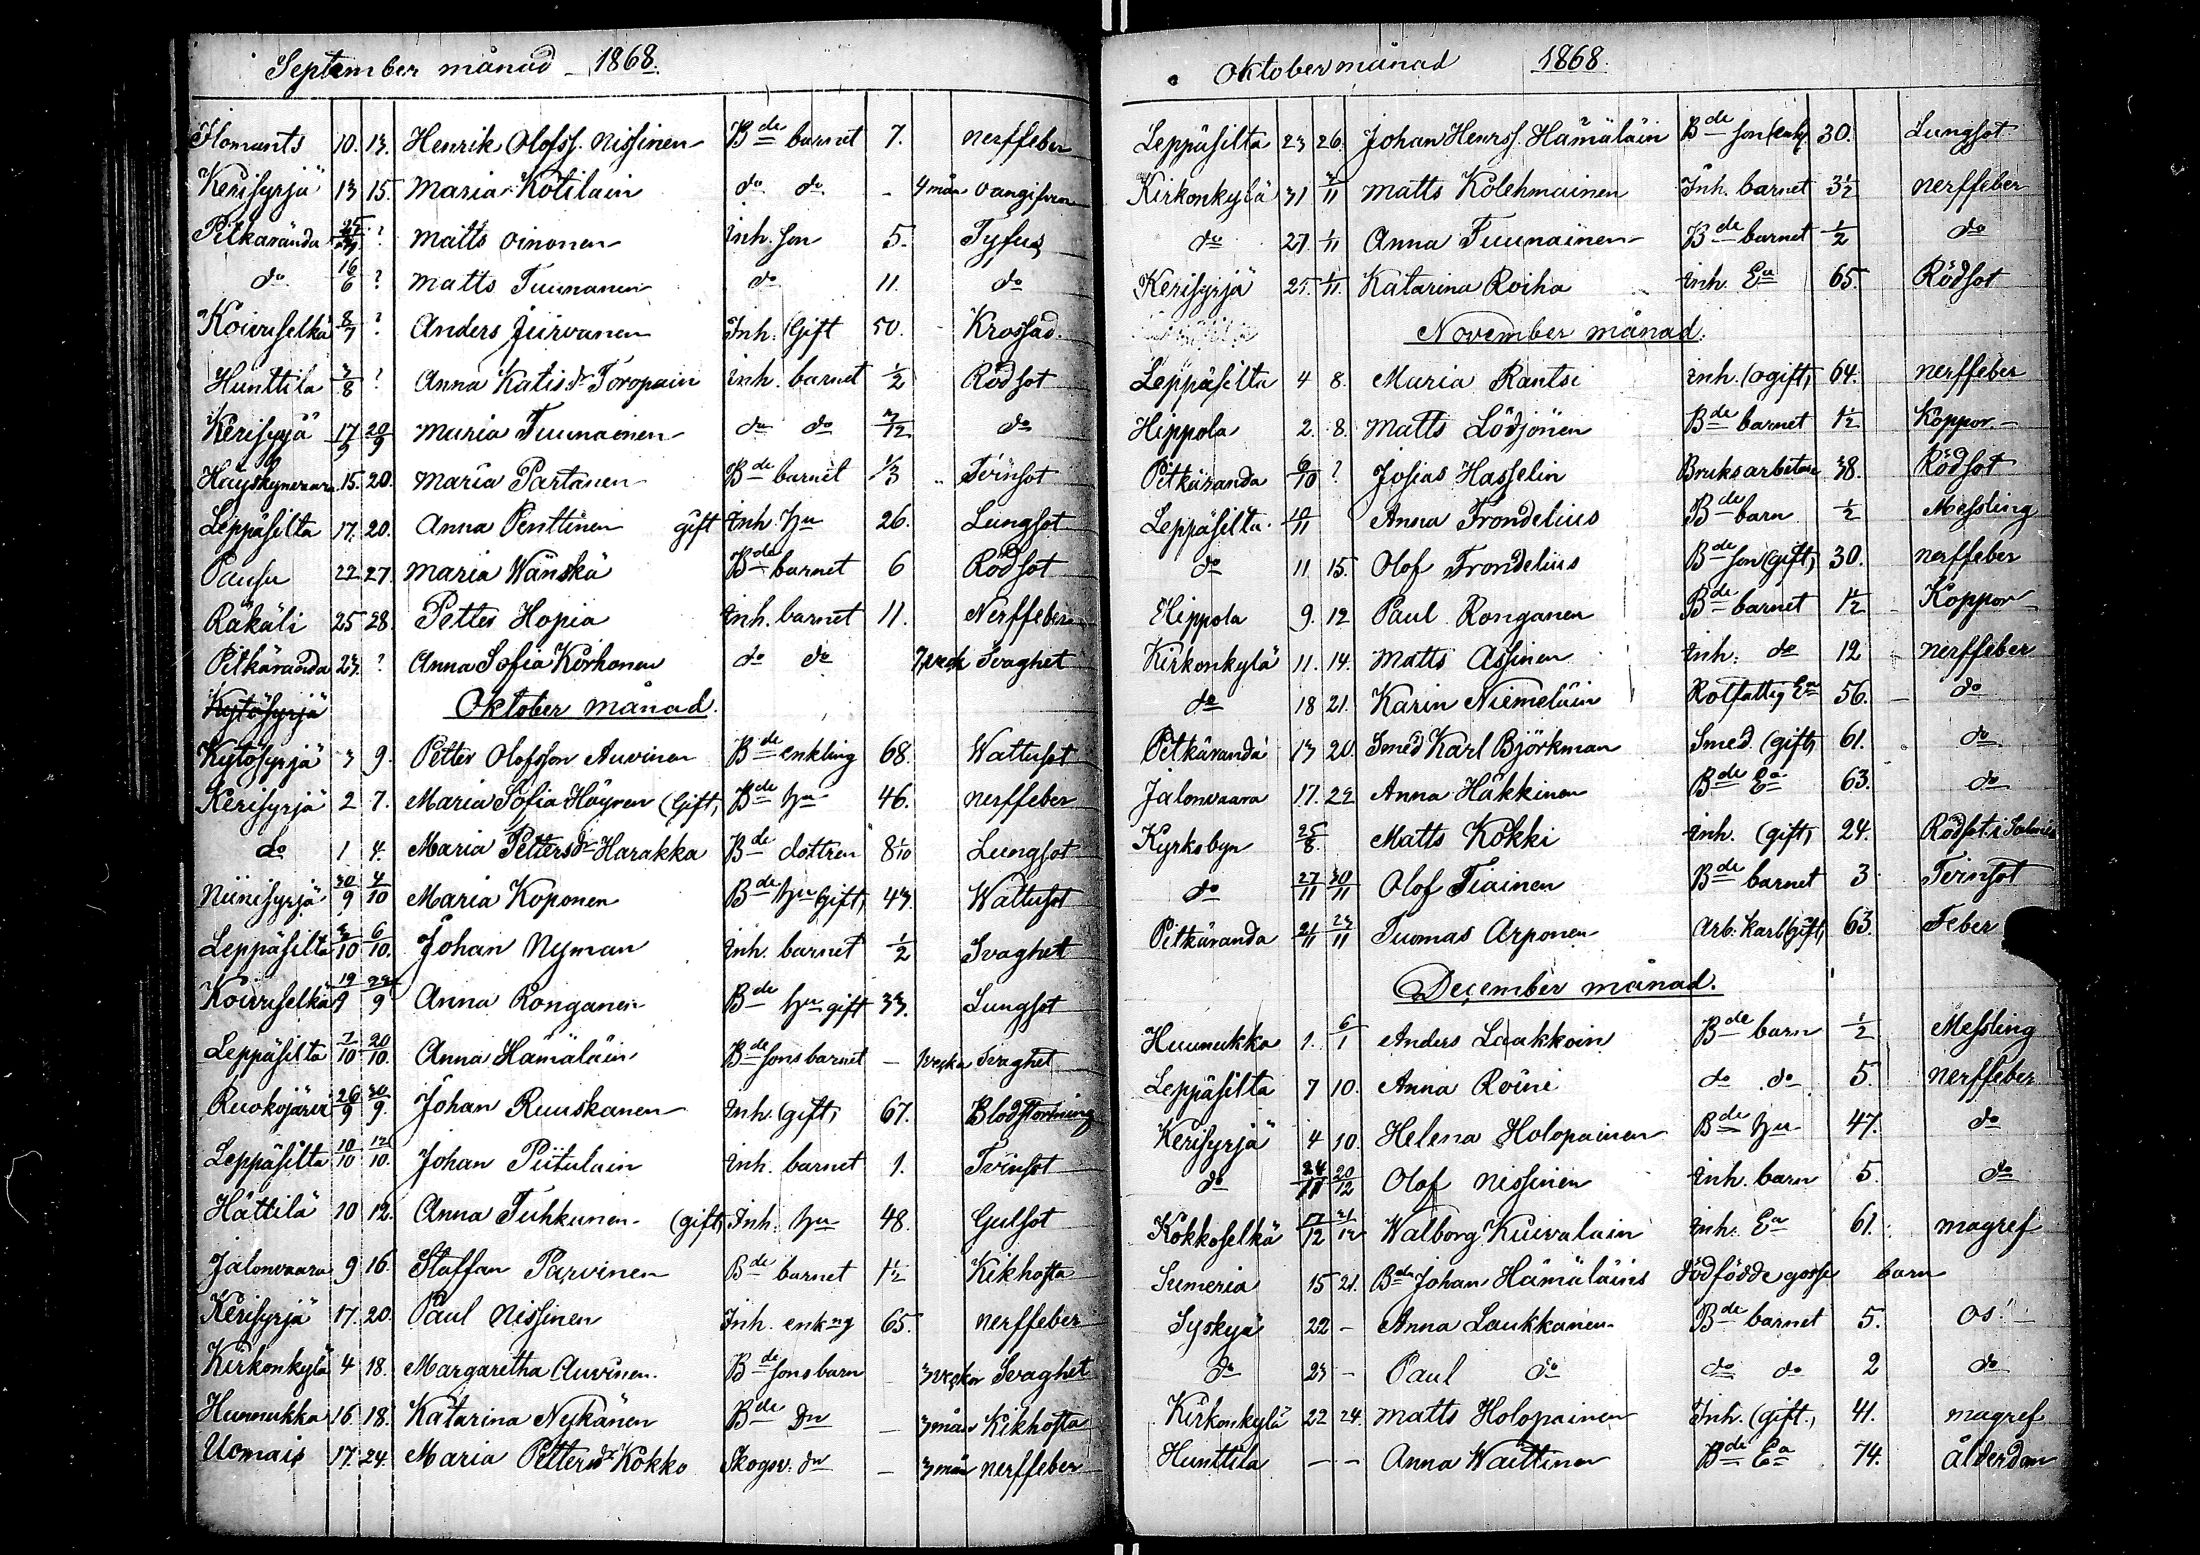 September månad - 1868.
Ilomants 10. 13. Henrik Olofss. Nissinen Bde barnet 7. nerffeber
Kerisyrjä 13 15. Maria Kotilain do do - 4 mån
Pitkäranda ? Matts Oinonen inh. son 5. Tyfus
do 16/6 ? Matts Tuunanen do 11. do
Koivuselkä 8/7 ? Anders Jürvanen Inh. Gift 50. Krossad.
Hunttila 3/8 ? Anna Katis dr Toropain inh. barnet 1/2 Rödsot
Kerisyrjä 17/9 20/9 Maria Tuunainen do do 7/12 do
15. 20. Maria Partanen Bde barnet 1/3 Tvinsot
Leppäsilta 17. 20. Anna Penttinen gift Inh. hu 26. Lungsot
Pausu 22 27. Maria Wänskä Bde barnet 6 Rödsot
Räkäli 25 28. Petter Hopia inh. barnet 11. Nerffeber
Pitkäranda 23. ? Anna Sofia Korhonen do do 7 veck Svaghet
Kytösyrjä
Oktober månad.
Kytösyrjä 3 9. Petter Olofsson Auvinen Bde enkling 68. Wattusot
Kerisyrjä 2 7. Maria Sofia Häyren (Gift) Bde hu 46. nerffeber
do 1 4. Maria Petters dr Harakka Bde dottren 8 1/10 Lungsot
Niinisyrjä 30/9 4/10 Maria Koponen Bde hu Gift) 43. Wattusot
Leppäsilta 3/10 6/10. Johan Nyman inh. barnet 1/2 Svaghet
Koivuselkä 19/9 22/9 Anna Ronganen Bde hu gift 33. Lungsot
Leppäsilta 7/10 20/10. Anna Hämäläin Bde sons barnet - 1 vecka Svaghet
Ruokojärvi 26/9 30/9. Johan Ruuskanen Inh. (gift) 67. Blodstörtning
Leppäsilta 10/10 12/10. Johan Piitulain inh. barnet 1. Tvinsot
Hättilä 10 12. Anna Tuhkunen (gift) Inh. hu 48. Gulsot
Jalonvaara 9 16. Staffan Parvinen Bde barnet 1 1/2 Kikhosta
Kerisyrjä 17. 20. Paul Nissinen Inh. enkng 65. nerffeber
Kirkonkylä 4 18. Margaretha Auvinen. Bde sons barn 3 veckor Svaghet
Huunukka 16 18. Katarina Nykänen Bde dr - 3 mån Kikhosta
Uomais 17. 24. Maria Petters dr Kokko Skogsv. dr - 3 mån nerffeber
Oktober månad 1868.
Leppäsilta 23 26. Johan Henrss. Hämäläin Bde son (enk) 30. Lungsot
Kirkonkylä 31 3/11 Matts Kolehmainen Inh. barnet 3 1/2 nerffeber
do 27. 1/11 Anna Tuunainen Bde barnet 1/2 do
Kerisyrjä 25. 1/11. Katarina Roiha inh. Ea 65. Rödsot
November månad.
Leppäsilta 4 8. Maria Rantsi inh. (ogift) 64. nerffeber
Hippola 2. 8. Matts Lödjönen Bde barnet 1 1/2 Koppor.
Pitkäranda 6/10 ? Josias Hasselin Bruksarbetare 38. Rödsot
Leppäsilta. 10/11 Anna Trondelius Bde barn 1/2 Messling
do 11 15. Olof Trondelius Bde son (gift) 30. nerffeber
Hippola 9. 12 Paul Ronganen Bde barnet 1 1/2 Koppor
Kirkonkylä 11. 14. Matts Assinen inh. do 12 nerffeber
do 18 21. Karin Niemeläin Rotfattig Ea 56. do
Pitkäranda 13 20. Smed Karl Björkman Smed. (gift) 61. do
Jalonvaara 17. 22 Anna Häkkinen Bde Ea 63. do
Kyrkobyn 25/8. Matts Kokki inh. (gift) 24. Rödsot i Salmis
do 27/11 30/11 Olof Tiainen Bde barnet 3 Tvinsot
Pitkäranda 21/11 23/11 Tuomas Arponen Arb. karl (gift) 63. Feber
December månad.
Huunukka 1. 6/1 Anders Laakkoin Bde barn 1/2 Messling
Leppäsilta 7 10. Anna Roini do do 5. nerffeber
Kerisyrjä 4 10. Helena Holopainen Bde hu 47. do
do 24/11 20/12 Olof Nissinen inh. barn 5. do
Kokkoselkä 17/12 21/12 Walborg Kuivalain inh. Ea 61. magref
Sumeria 15 21. Bde Johan Hämäläins dödfödde gosse barn
Syskyä 22 - Anna Laukkanen Bde barnet 5. os!
do 23 - Paul do do do 2 do
Kirkonkylä 22 24. Matts Holopainen Inh. (gift.) 41. magref
Hunttila - - Anna Waittinen Bde Ea 74. ålderdom